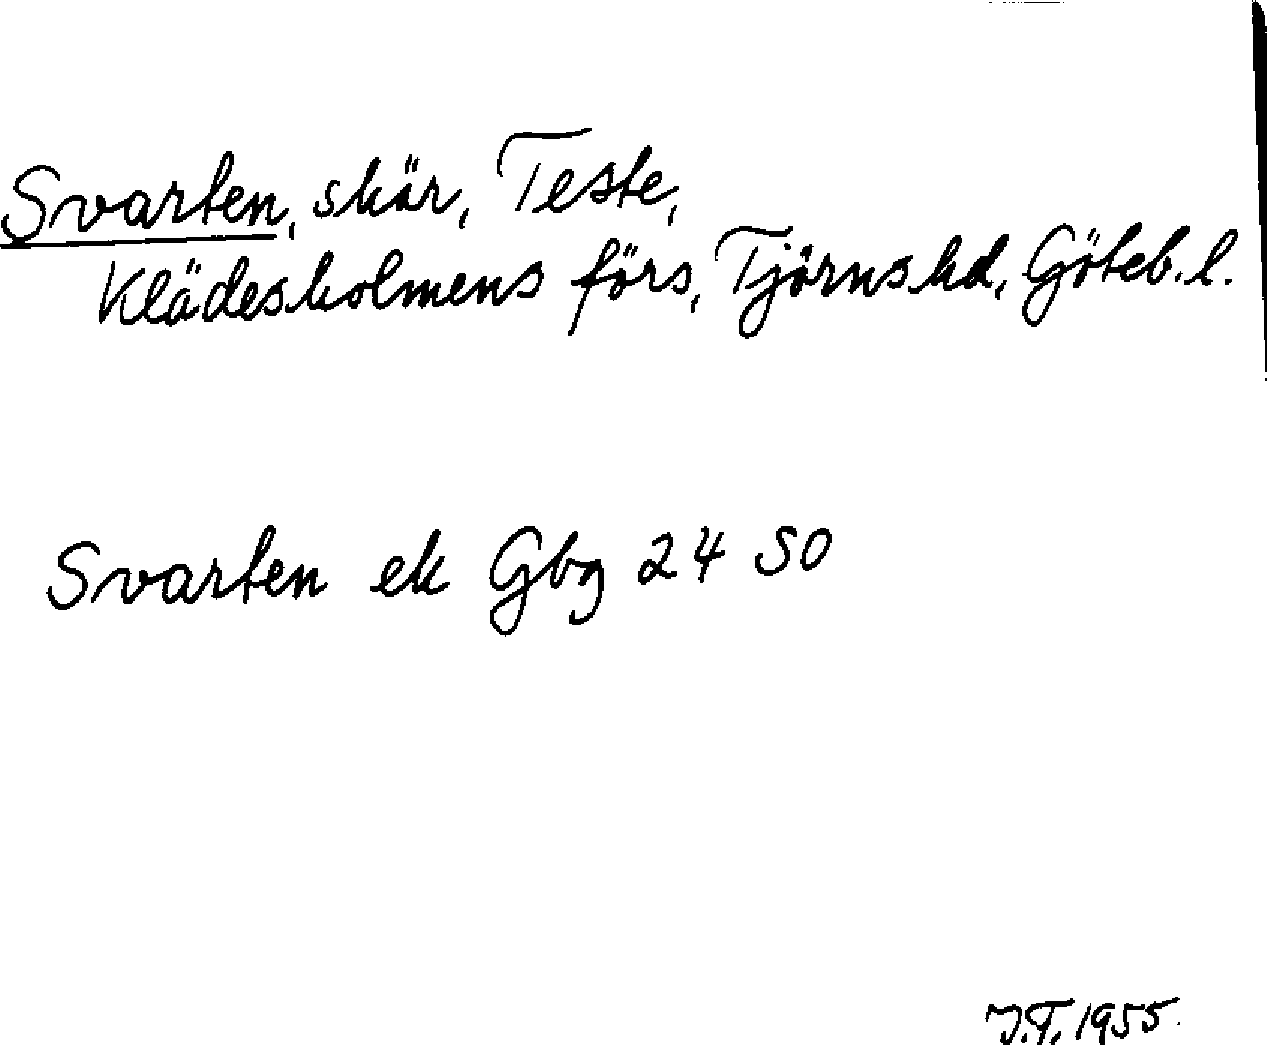 Svarten, skär, Teste,
Klädesholmens förs, Tjörns hd, Göteb. l.
Svarten ek Gbg 24 SO
J.T. 1955.